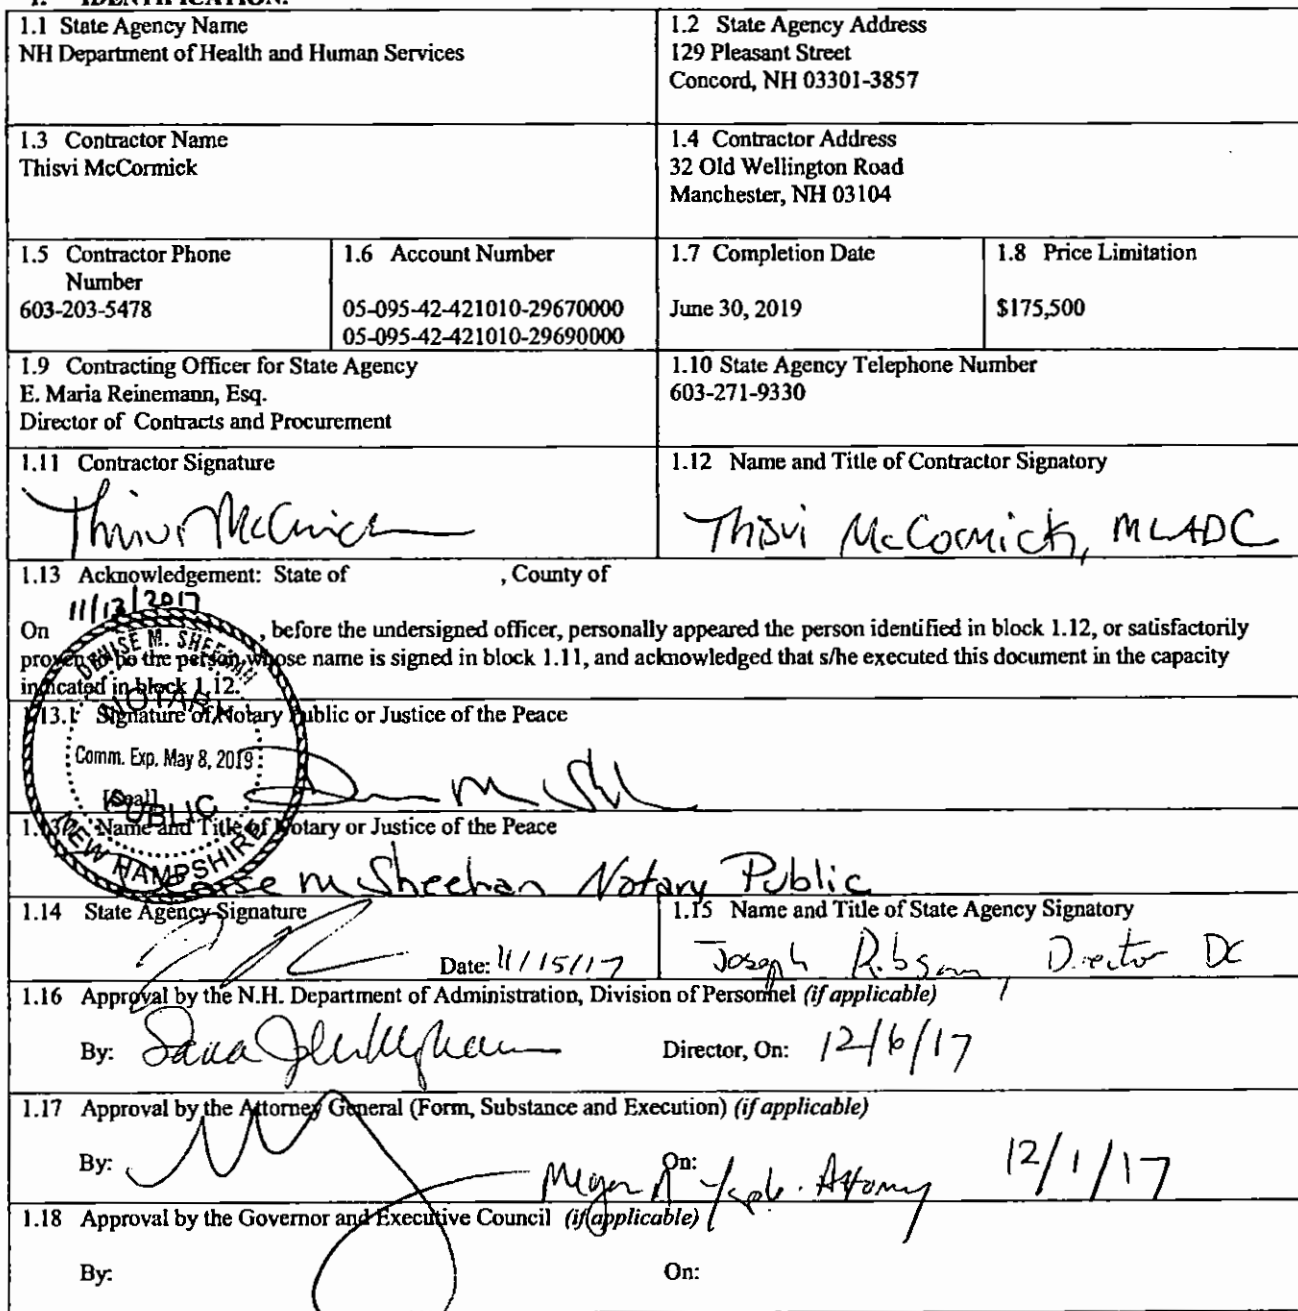 1. IDENTIFICATION.
1.1 State Agency Name
NH Department of Health and Human Services
1.2 State Agency Address
129 Pleasant Street
Concord, NH 03301-3857
1.3 Contractor Name
Thisvi McCormick
1.4 Contractor Address
32 Old Wellington Road
Manchester, NH 03104
1.5 Contractor Phone
Number
603-203-5478
1.6 Account Number
05-095-42-421010-29670000
05-095-42-421010-29690000
1.7 Completion Date
June 30, 2019
1.8 Price Limitation
$175,500
1.9 Contracting Officer for State Agency
E. Maria Reinemann, Esq.
Director of Contracts and Procurement
1.10 State Agency Telephone Number
603-271-9330
1.11 Contractor Signature
Thisvi McCormick
1.12 Name and Title of Contractor Signatory
Thisvi McCormick, MLADC
1.13 Acknowledgement: State of , County of
11/13/2017
On , before the undersigned officer, personally appeared the person identified in block 1.12, or satisfactorily
proven to be the person whose name is signed in block 1.11, and acknowledged that s/he executed this document in the capacity
indicated in block 1.12.
DENISE M. SHEEHAN
NOTARY
Comm. Exp. May 8, 2019
PUBLIC
NEW HAMPSHIRE
1.13.1 Signature of Notary Public or Justice of the Peace
[Seal]
1.13.2 Name and Title of Notary or Justice of the Peace
Denise M Sheehan Notary Public
1.14 State Agency Signature
Date: 11/15/17
1.15 Name and Title of State Agency Signatory
Joseph Director DC
1.16 Approval by the N.H. Department of Administration, Division of Personnel (if applicable)
By: Director, On: 12/6/17
1.17 Approval by the Attorney General (Form, Substance and Execution) (if applicable)
By: On: 12/1/17
Attorney
1.18 Approval by the Governor and Executive Council (if applicable)
By: On: